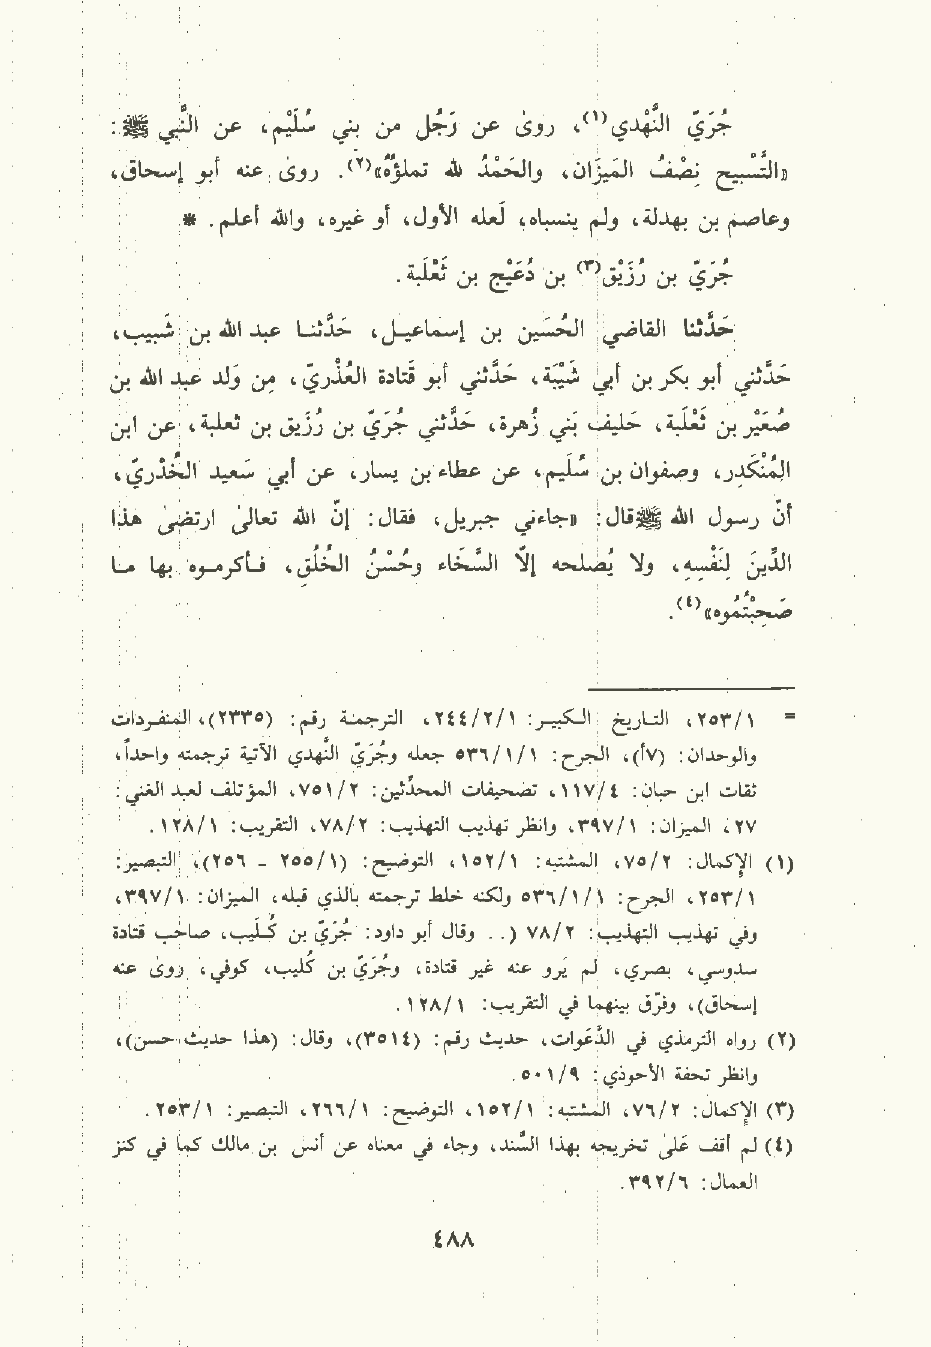 جُرَيّ النَّهْدي(١)، روىٰ عن رَجُل من بني سُلَيْم، عن النَّبي ﷺ:
«التَّسْبيح نِصْفُ المِيزَان، والحَمْدُ لله تملؤُهُ»(٢). روىٰ عنه أبو إسحاق،
وعاصم بن بهدلة، ولم ينسباه، لَعله الأول، أو غيره، والله أعلم. *
جُرَيّ بن رُزَيْق(٣) بن دُعَيْج بن ثَعْلَبة.
حَدَّثنا القاضي الحُسَين بن إسماعيل، حَدَّثنا عبد الله بن شَبيب،
حَدَّثني أبو بكر بن أبي شَيْبَة، حَدَّثني أبو قَتادة العُذْريّ، مِن وَلد عبد الله بن
صُعَيْر بن ثَعْلَبة، حَليف بَني زُهرة، حَدَّثني جُرَيّ بن رُزَيق بن ثعلبة، عن ابن
المُنْكَدِر، وصفوان بن سُلَيم، عن عطاء بن يسار، عن أبي سَعيد الخُدْريّ،
أنّ رسول الله ﷺ قال: «جاءني جبريل، فقال: إنّ الله تعالىٰ ارتضىٰ هذا
الدِّينَ لِنَفْسِهِ، ولا يُصلحه إلاّ السَّخَاء وحُسْنُ الخُلُقِ، فأكرموه بها ما
صَحِبْتُمُوه»(٤).
= ٢٥٣/١، التاريخ الكبير: ٢٤٤/٢/١، الترجمة رقم: (٢٣٣٥)، المنفردات
والوحدان: (٧أ)، الجرح: ٥٣٦/١/١ وجعله وجُرَيّ النَّهدي الآتية ترجمته واحداً،
ثقات ابن حبان: ١١٧/٤، تصحيفات المحدِّثين: ٧٥١/٢، المؤتلف لعبد الغني:
٢٧، الميزان: ٣٩٧/١، وانظر تهذيب التهذيب: ٧٨/٢، التقريب: ١٢٨/١.
(١) الإكمال: ٧٥/٢، المشتبه: ١٥٢/١، التوضيح: (٢٥٥/١ - ٢٥٦)، التبصير:
٢٥٣/١، الجرح: ٥٣٦/١/١ ولكنه خلط ترجمته بالذي قبله، الميزان: ٣٩٧/١،
وفي تهذيب التهذيب: ٧٨/٢ (.. وقال أبو داود: جُرَيّ بن كُلَيب، صاحب قتادة
سدوسي، بصري، لم يَرو عنه غير قتادة، وجُرَيّ بن كُليب، كوفي، روىٰ عنه
إسحاق)، وفرّق بينهما في التقريب: ١٢٨/١.
(٢) رواه الترمذي في الدَّعَوات، حديث رقم: (٣٥١٤)، وقال: (هذا حديث حسن)،
وانظر تحفة الأحوذي: ٥٠١/٩.
(٣) الإكمال: ٧٦/٢، المشتبه: ١٥٢/١، التوضيح: ٢٦٦/١، التبصير: ٢٥٣/١.
(٤) لم أقف عَلىٰ تخريجه بهذا السَّند، وجاء في معناه عن أنس بن مالك كما في كنز
العمال: ٣٩٢/٦.
٤٨٨